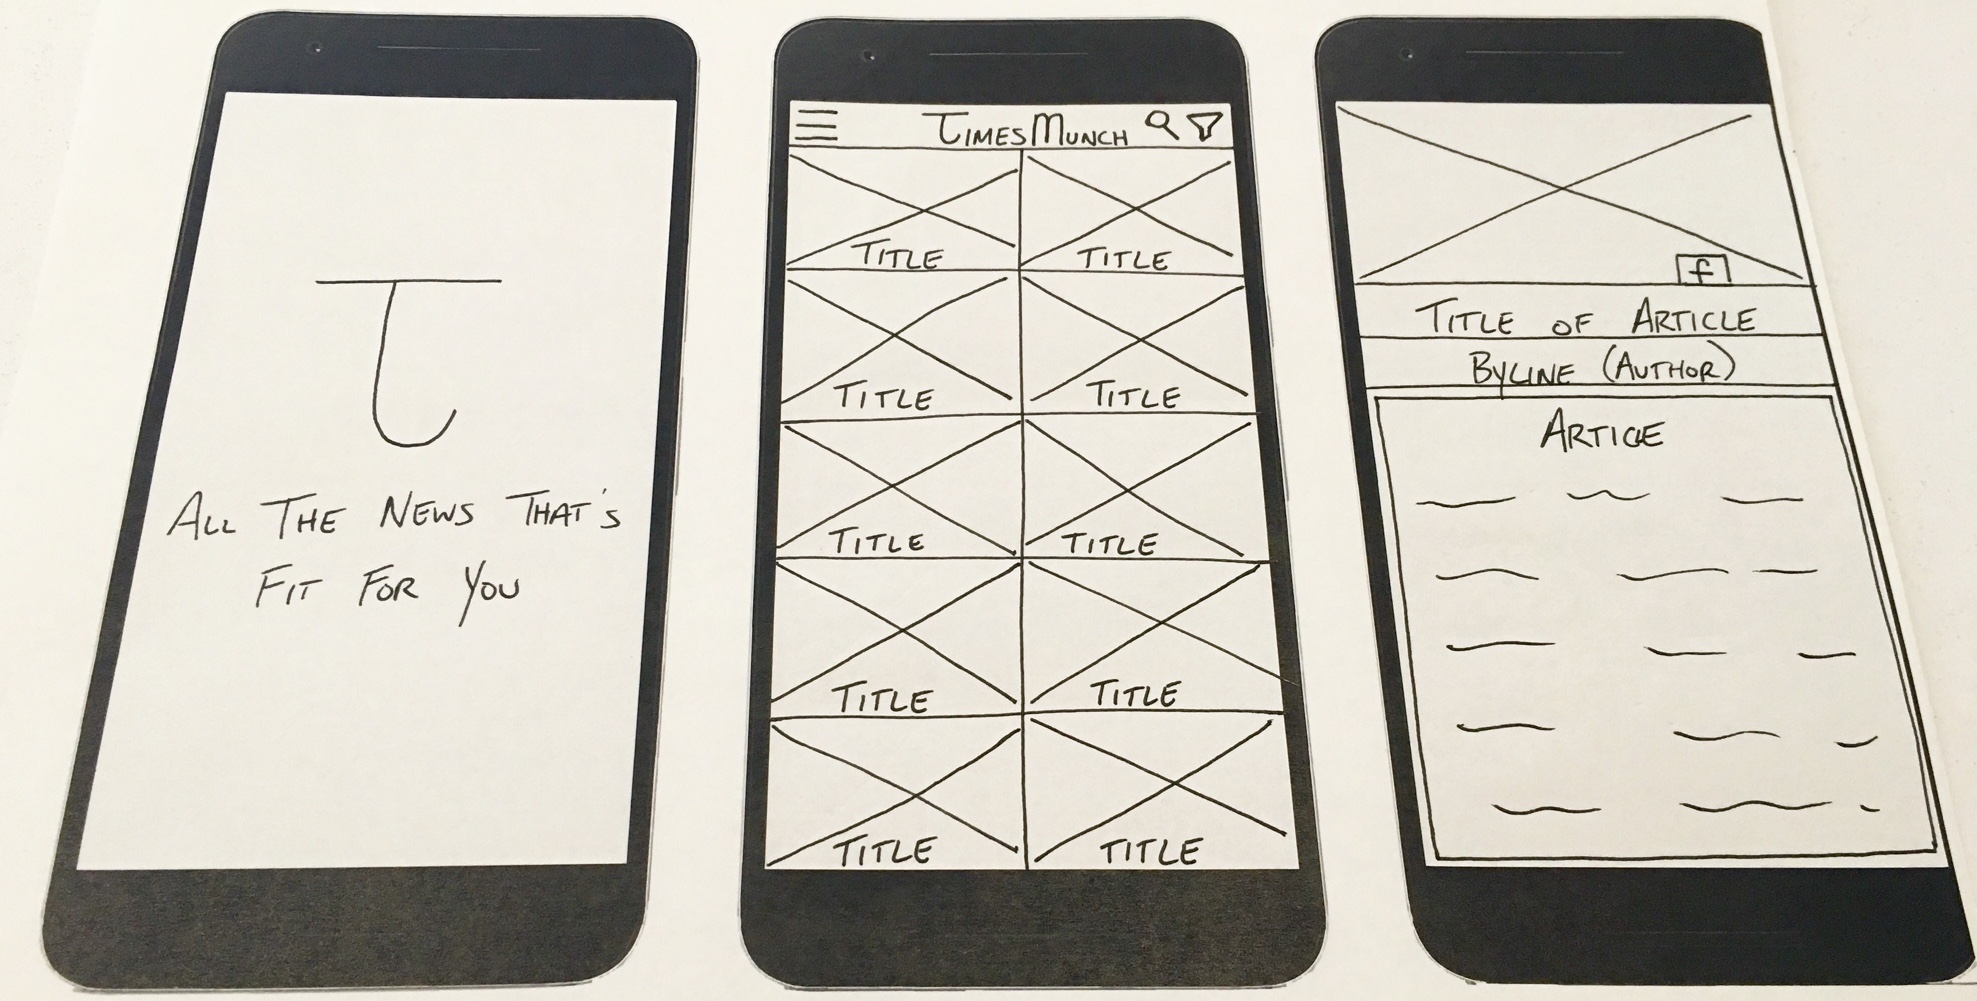 T
ALL THE NEWS THAT'S
FIT FOR YOU
TIMESMUNCH
TITLE TITLE
TITLE TITLE
TITLE TITLE
TITLE TITLE
TITLE TITLE
f
TITLE OF ARTICLE
BYLINE (AUTHOR)
ARTICLE